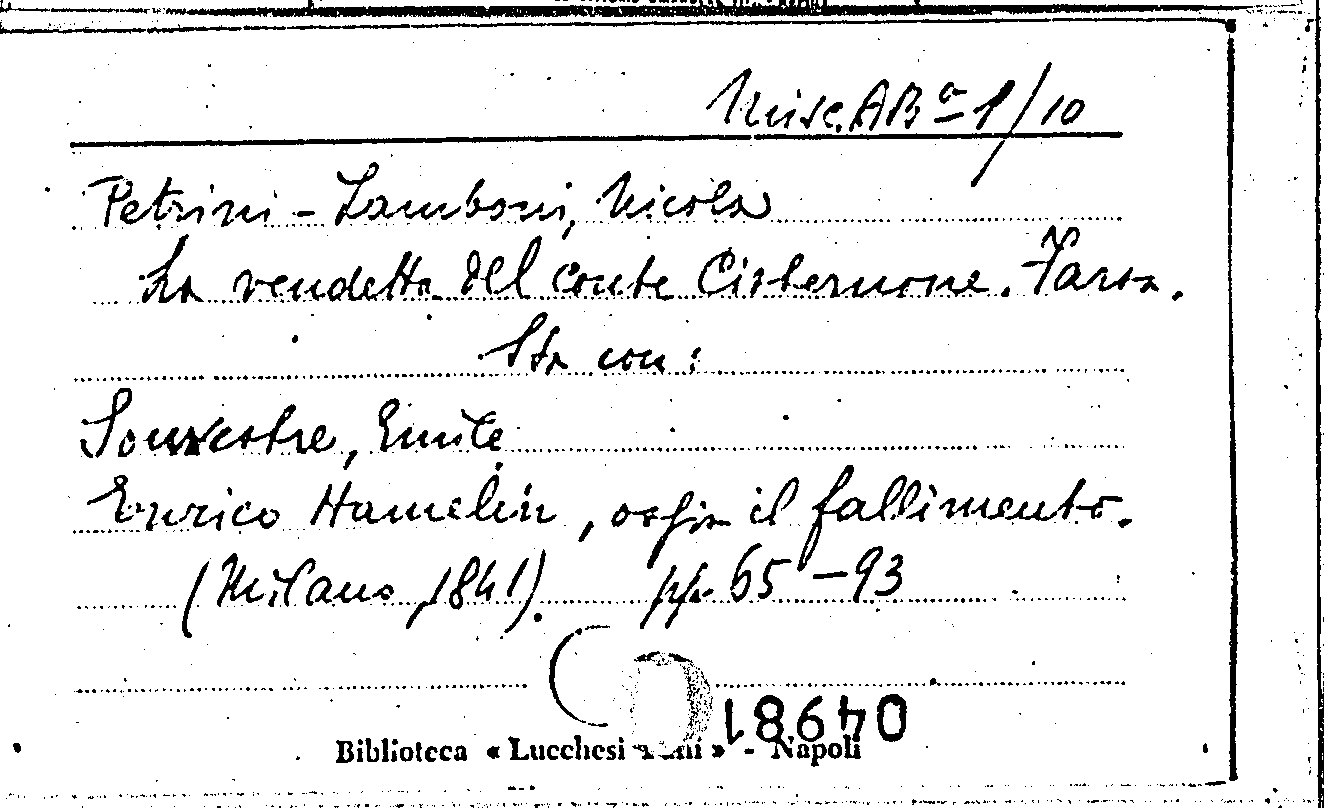 Misc. AB a 1/10
Petrini - Zamboni, Nicola
La vendetta del conte Cisternone. Farsa.
Sta con:
Souvestre, Emile
Enrico Hamelin, ossia il fallimento.
(Milano, 1841). pp. 65-93
04981
Biblioteca « Lucchesi Palli » - Napoli